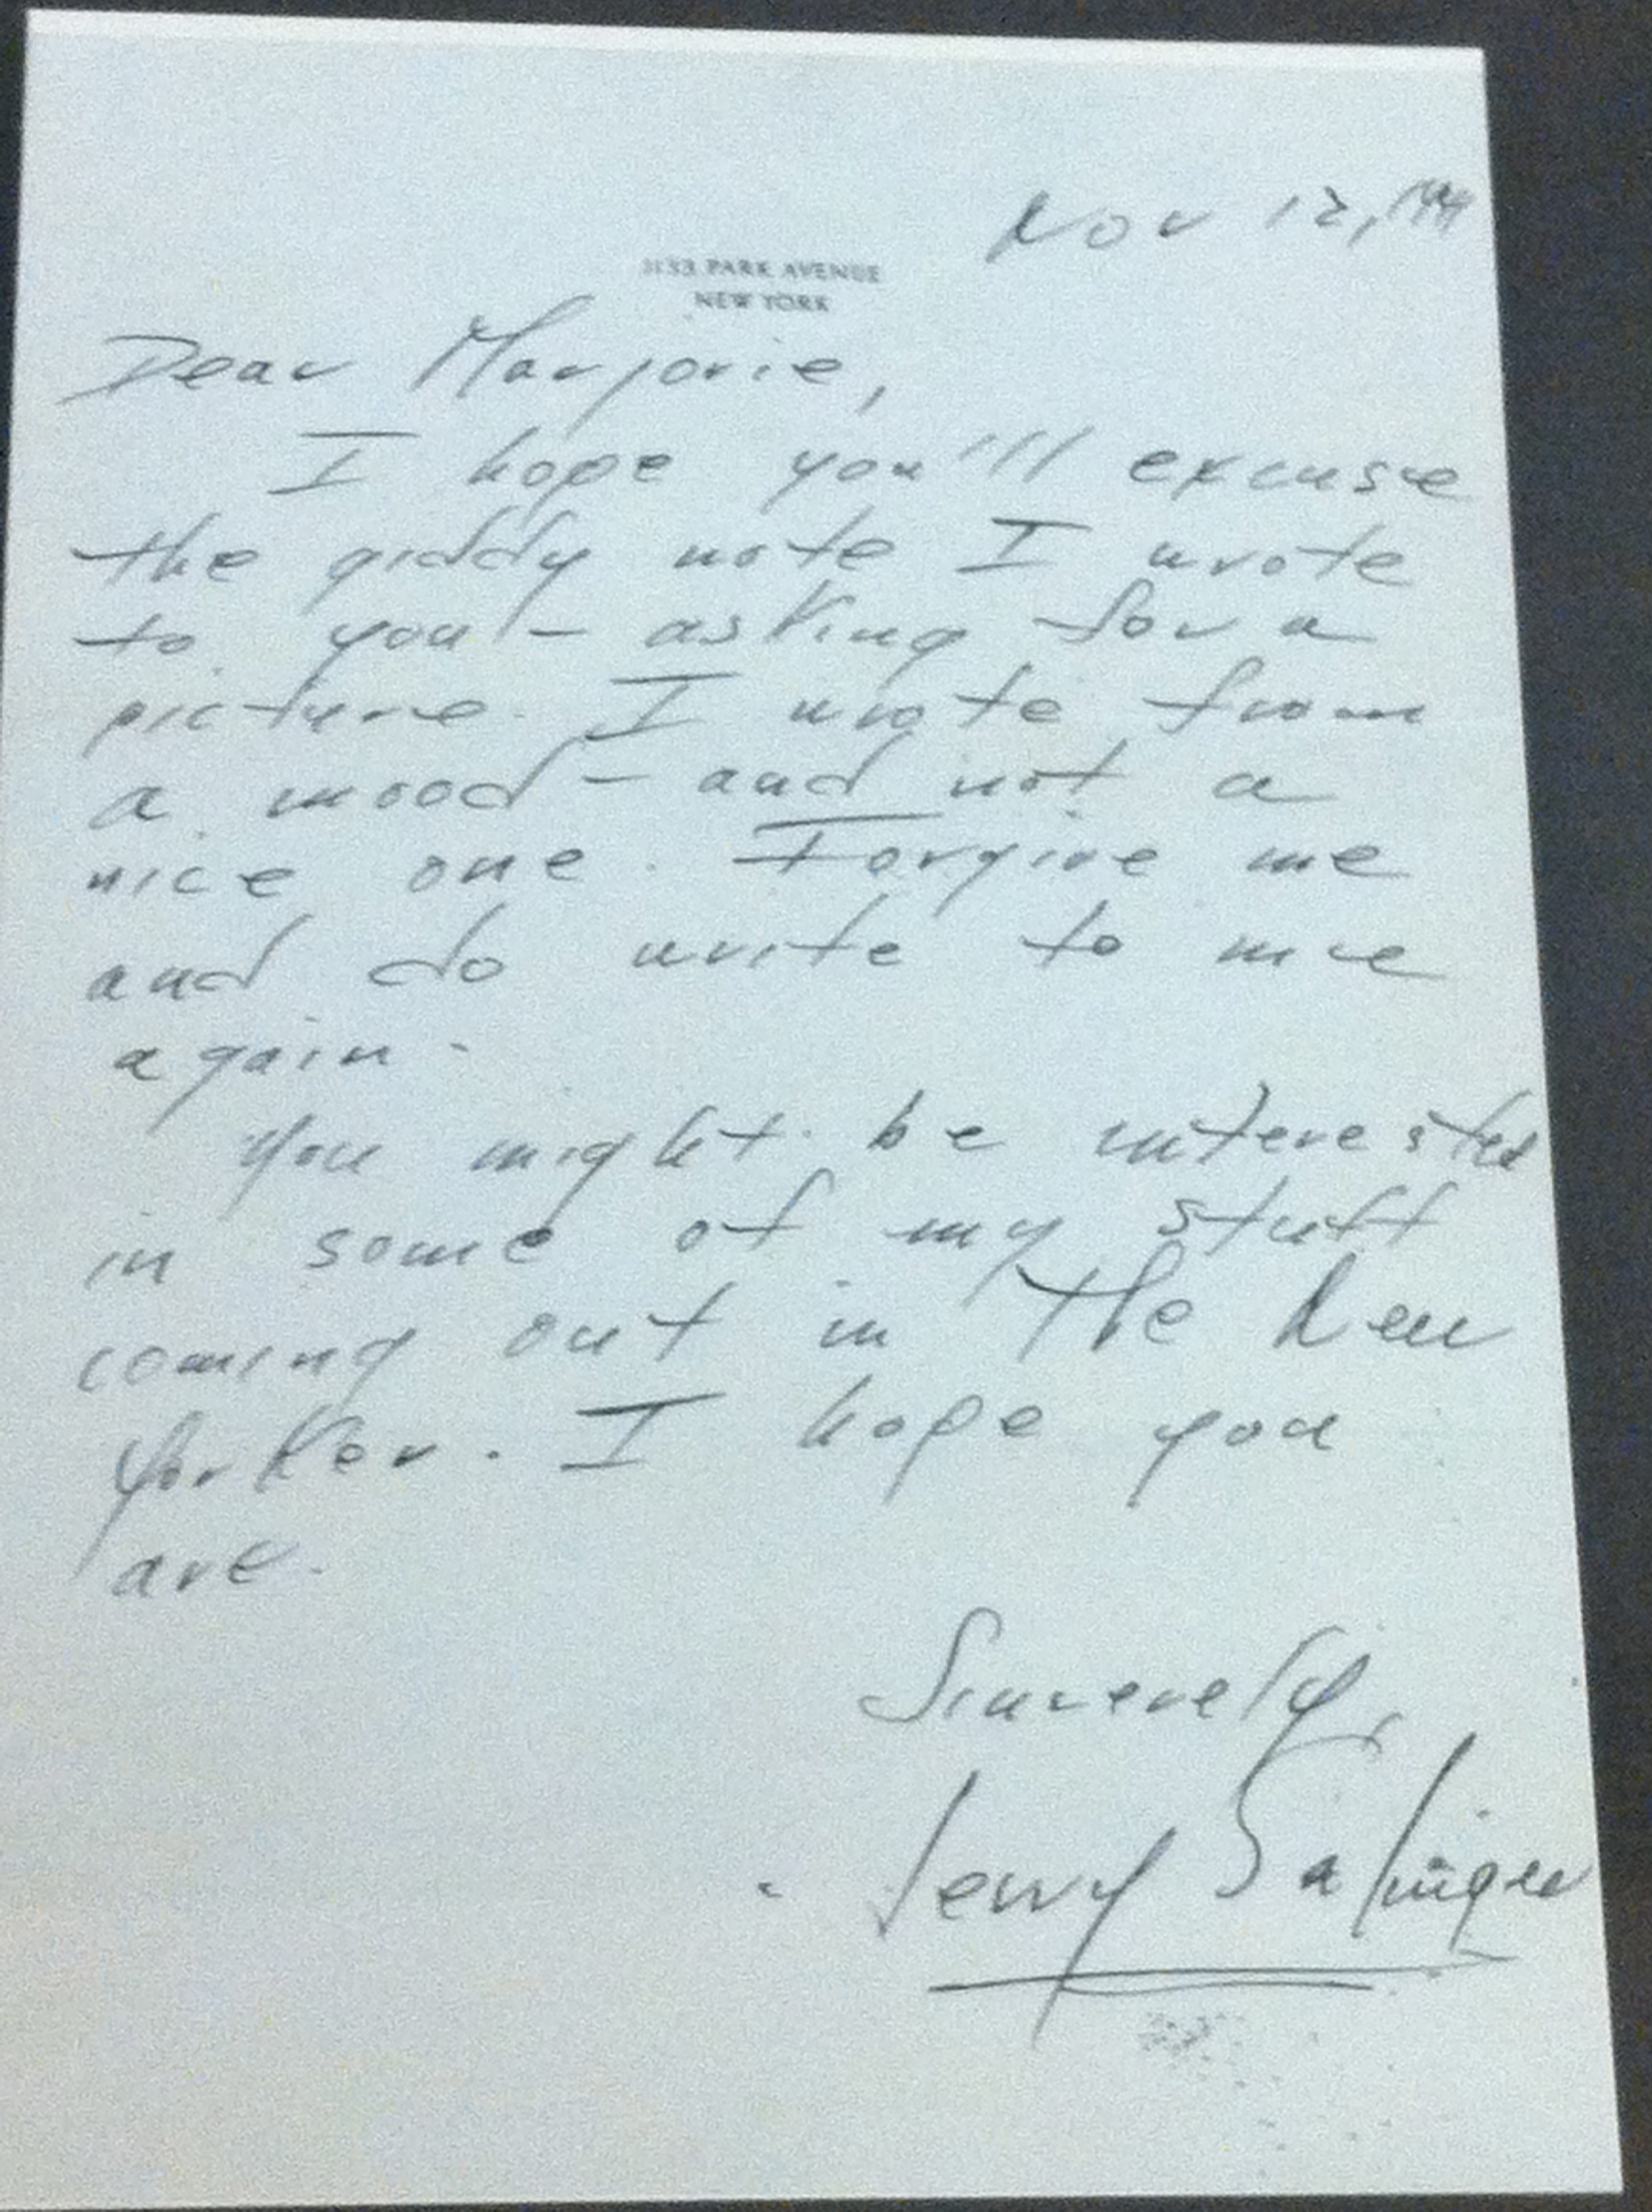 Nov 12,
1133 PARK AVENUE
NEW YORK
Dear Marjorie,
I hope you'll excuse
the giddy note I wrote
to you — asking for a
picture. I wrote from
a mood — and not a
nice one. Forgive me
and do write to me
again.
You might be interested
in some of my stuff
coming out in The New
Yorker. I hope you
are.
Sincerely,
Jerry Salinger